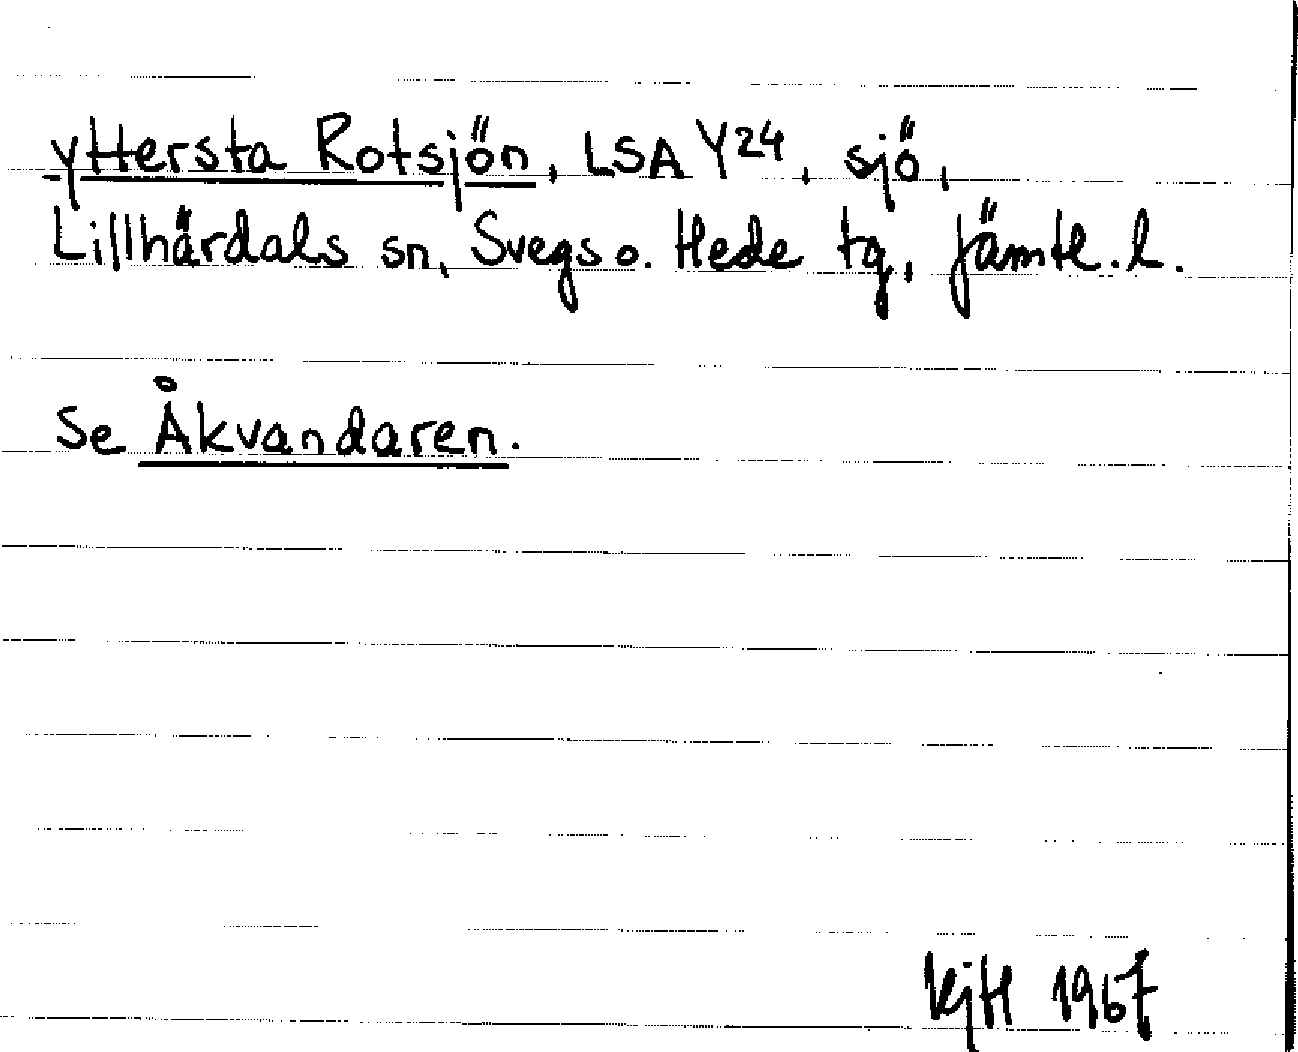 yttersta Rotsjön, LSA Y24, sjö,
Lillhärdals sn, Svegs o. Hede tg, Jämtl. l.
Se Åkvandaren.
KjH 1967